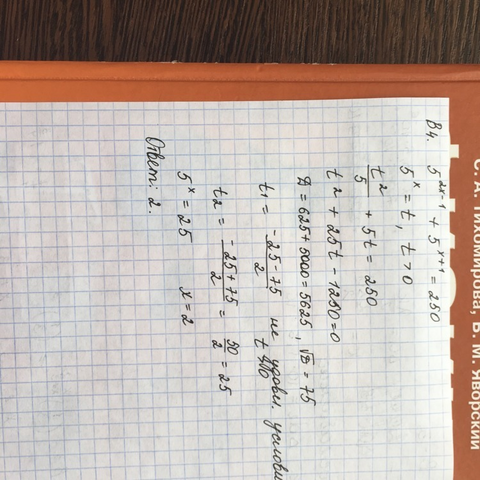 С. А. Тихомирова, Б. М. Яворский
B4. 5^{2x-1} + 5^{x+1} = 250
5^x = t, t>0
t^2/5 + 5t = 250
t^2 + 25t - 1250 = 0
D = 625 + 5000 = 5625, √D = 75
t₁ = (-25-75)/2 не удовл. услови
t
t₂ = (-25+75)/2 = 50/2 = 25
5^x = 25 x = 2
Ответ: 2.